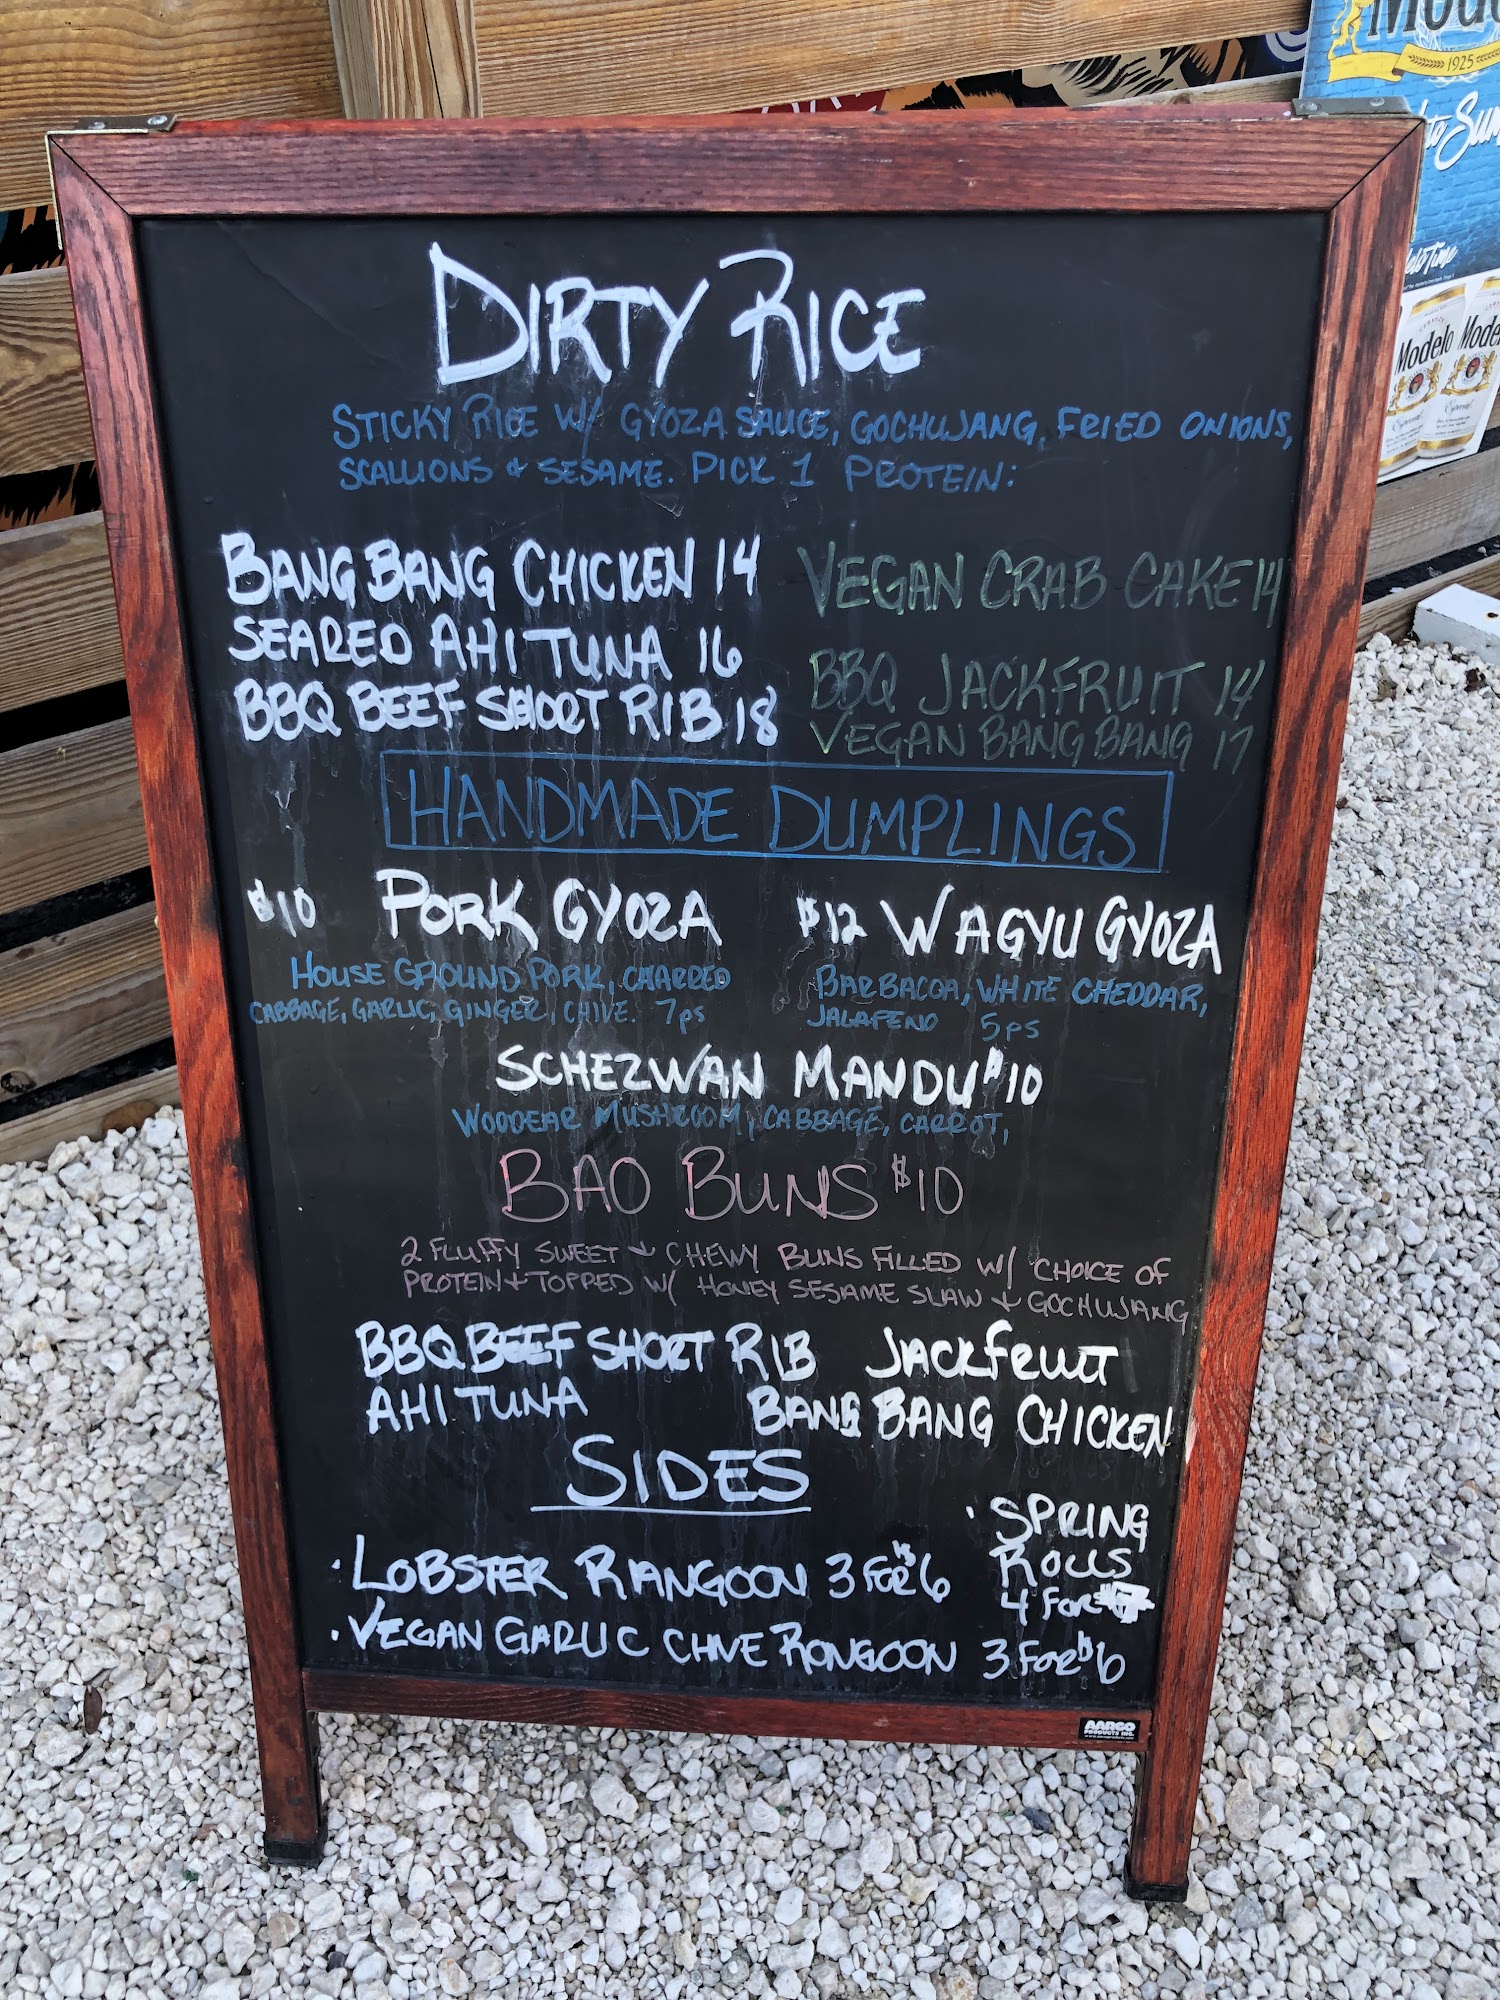 Mode
1925
DIRTY RICE
STICKY RICE W/ GYOZA SAUCE, GOCHUJANG, FRIED ONIONS,
SCALLIONS & SESAME. PICK 1 PROTEIN:
BANG BANG CHICKEN 14
SEARED AHI TUNA 16
BBQ BEEF SHORT RIB 18
VEGAN CRAB CAKE 14
BBQ JACKFRUIT 14
VEGAN BANG BANG 17
HANDMADE DUMPLINGS
$10 PORK GYOZA
HOUSE GROUND PORK, CHARRED
CABBAGE, GARLIC, GINGER, CHIVE. 7ps
$12 WAGYU GYOZA
BARBACOA, WHITE CHEDDAR,
JALAPENO 5ps
SCHEZWAN MANDU $10
WOODEAR MUSHROOM, CABBAGE, CARROT,
BAO BUNS $10
2 FLUFFY SWEET + CHEWY BUNS FILLED W/ CHOICE OF
PROTEIN + TOPPED W/ HONEY SESAME SLAW + GOCHUJANG
BBQ BEEF SHORT RIB JACKFRUIT
AHI TUNA BANG BANG CHICKEN
SIDES
· LOBSTER RANGOON 3 FOR $6
· VEGAN GARLIC CHIVE RONGOON 3 FOR $6
· SPRING
ROLLS
4 FOR
AARCO
PRODUCTS INC.
Modelo Model